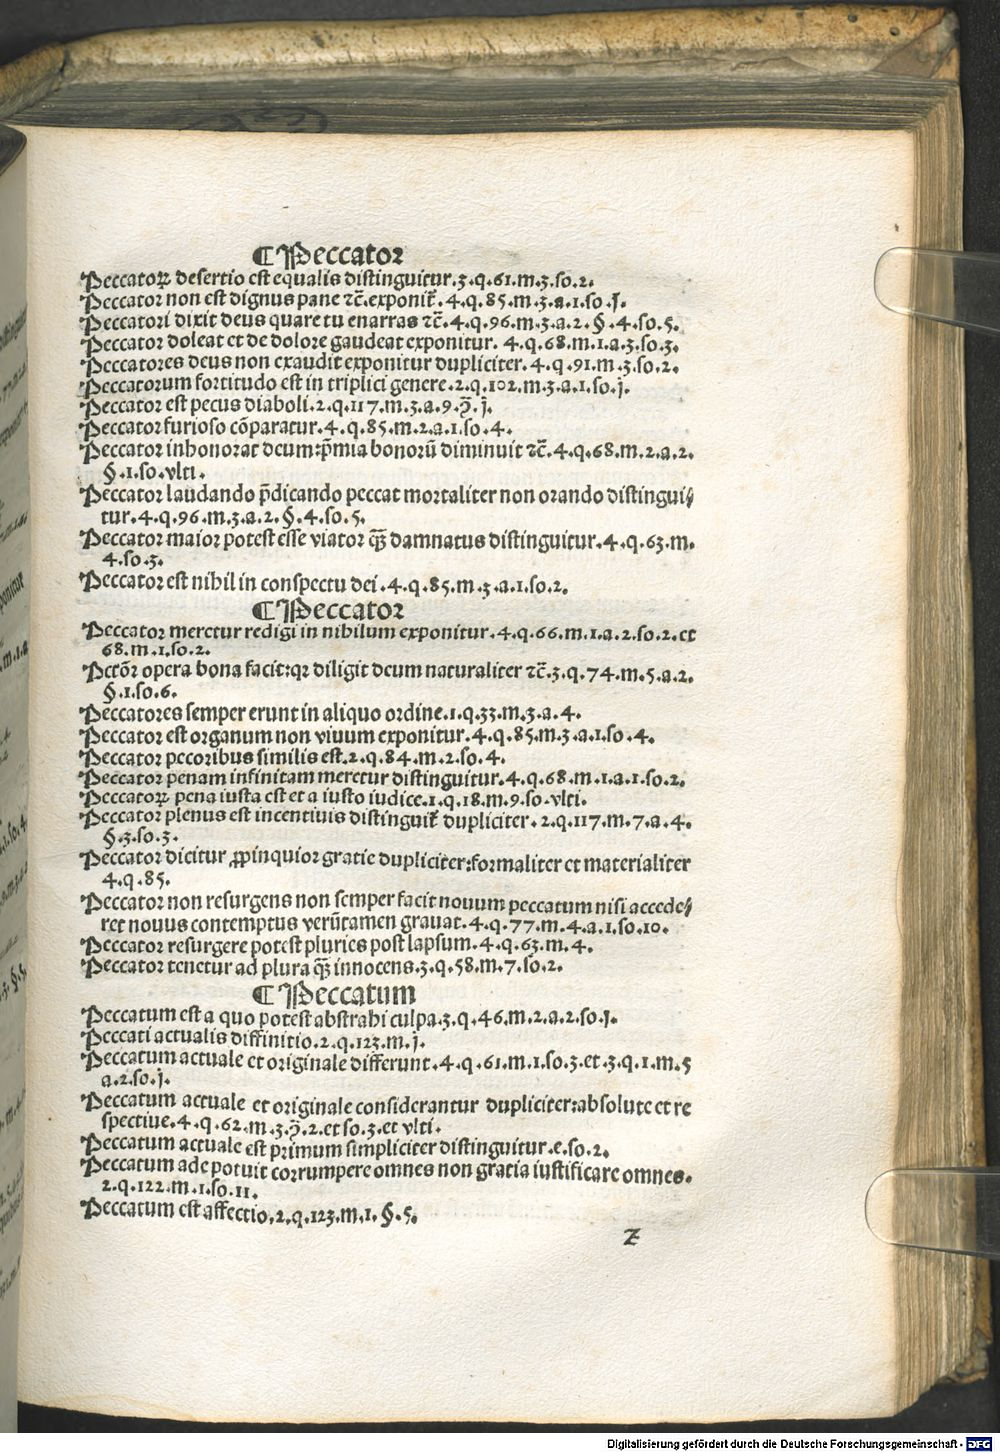 ¶ Peccator
Peccatoꝝ desertio est equalis distinguitur.3.q.61.m.3.so.2.
Peccator non est dignus pane ⁊c̄.exponit̄.4.q.85.m.3.a.1.so.j.
Peccatori dixit deus quare tu enarras ⁊c̄.4.q.96.m.3.a.2.§.4.so.5.
Peccator doleat et de dolore gaudeat exponitur. 4.q.68.m.1.a.3.so.3.
Peccatores deus non exaudit exponitur dupliciter.4.q.91.m.3.so.2.
Peccatorum fortitudo est in triplici genere.2.q.102.m.3.a.1.so.j.
Peccator est pecus diaboli.2.q.117.m.3.a.9.q̄.j.
Peccator furioso cōparatur.4.q.85.m.2.a.1.so.4.
Peccator inhonorat deum:p̄mia bonorū diminuit ⁊c̄.4.q.68.m.2.a.2.
§.1.so.vlti.
Peccator laudando p̄dicando peccat mortaliter non orando distingui⸗
tur.4.q.96.m.3.a.2.§.4.so.5.
Peccator maior potest esse viator q̄ꝫ damnatus distinguitur.4.q.63.m.
4.so.3.
Peccator est nihil in conspectu dei.4.q.85.m.3.a.1.so.2.
¶ Peccator
Peccator meretur redigi in nihilum exponitur.4.q.66.m.1.a.2.so.2.et
68.m.1.so.2.
Pctōr opera bona facit:qꝛ diligit deum naturaliter ⁊c̄.3.q.74.m.5.a.2.
§.1.so.6.
Peccatores semper erunt in aliquo ordine.1.q.33.m.3.a.4.
Peccator est organum non vivum exponitur.4.q.85.m.3.a.1.so.4.
Peccator pecoribus similis est.2.q.84.m.2.so.4.
Peccator penam infinitam meretur distinguitur.4.q.68.m.1.a.1.so.2.
Peccatoꝝ pena iusta est et a iusto iudice.1.q.18.m.9.so.vlti.
Peccator plenus est incentivis distinguit̄ dupliciter.2.q.117.m.7.a.4.
§.3.so.3.
Peccator dicitur ꝓpinquior gratie dupliciter:formaliter et materialiter
4.q.85.
Peccator non resurgens non semper facit nouum peccatum nisi accede⸗
ret novus contemptus verūtamen grauat.4.q.77.m.4.a.1.so.10.
Peccator resurgere potest pluries post lapsum.4.q.63.m.4.
Peccator tenetur ad plura q̄ꝫ innocens.3.q.58.m.7.so.2.
¶ Peccatum
Peccatum est a quo potest abstrahi culpa.3.q.46.m.2.a.2.so.j.
Peccati actualis diffinitio.2.q.123.m.j.
Peccatum actuale et originale differunt.4.q.61.m.1.so.3.et.3.q.1.m.5
a.2.so.j.
Peccatum actuale et originale considerantur dupliciter:absolute et re
spectiue.4.q.62.m.3.q̄.2.et so.3.et vlti.
Peccatum actuale est primum simpliciter distinguitur.e.so.2.
Peccatum ade potuit corrumpere omnes non gratia iustificare omnes.
2.q.122.m.1.so.11.
Peccatum est affectio.2.q.123.m.1.§.5.
z
Digitalisierung gefördert durch die Deutsche Forschungsgemeinschaft - DFG